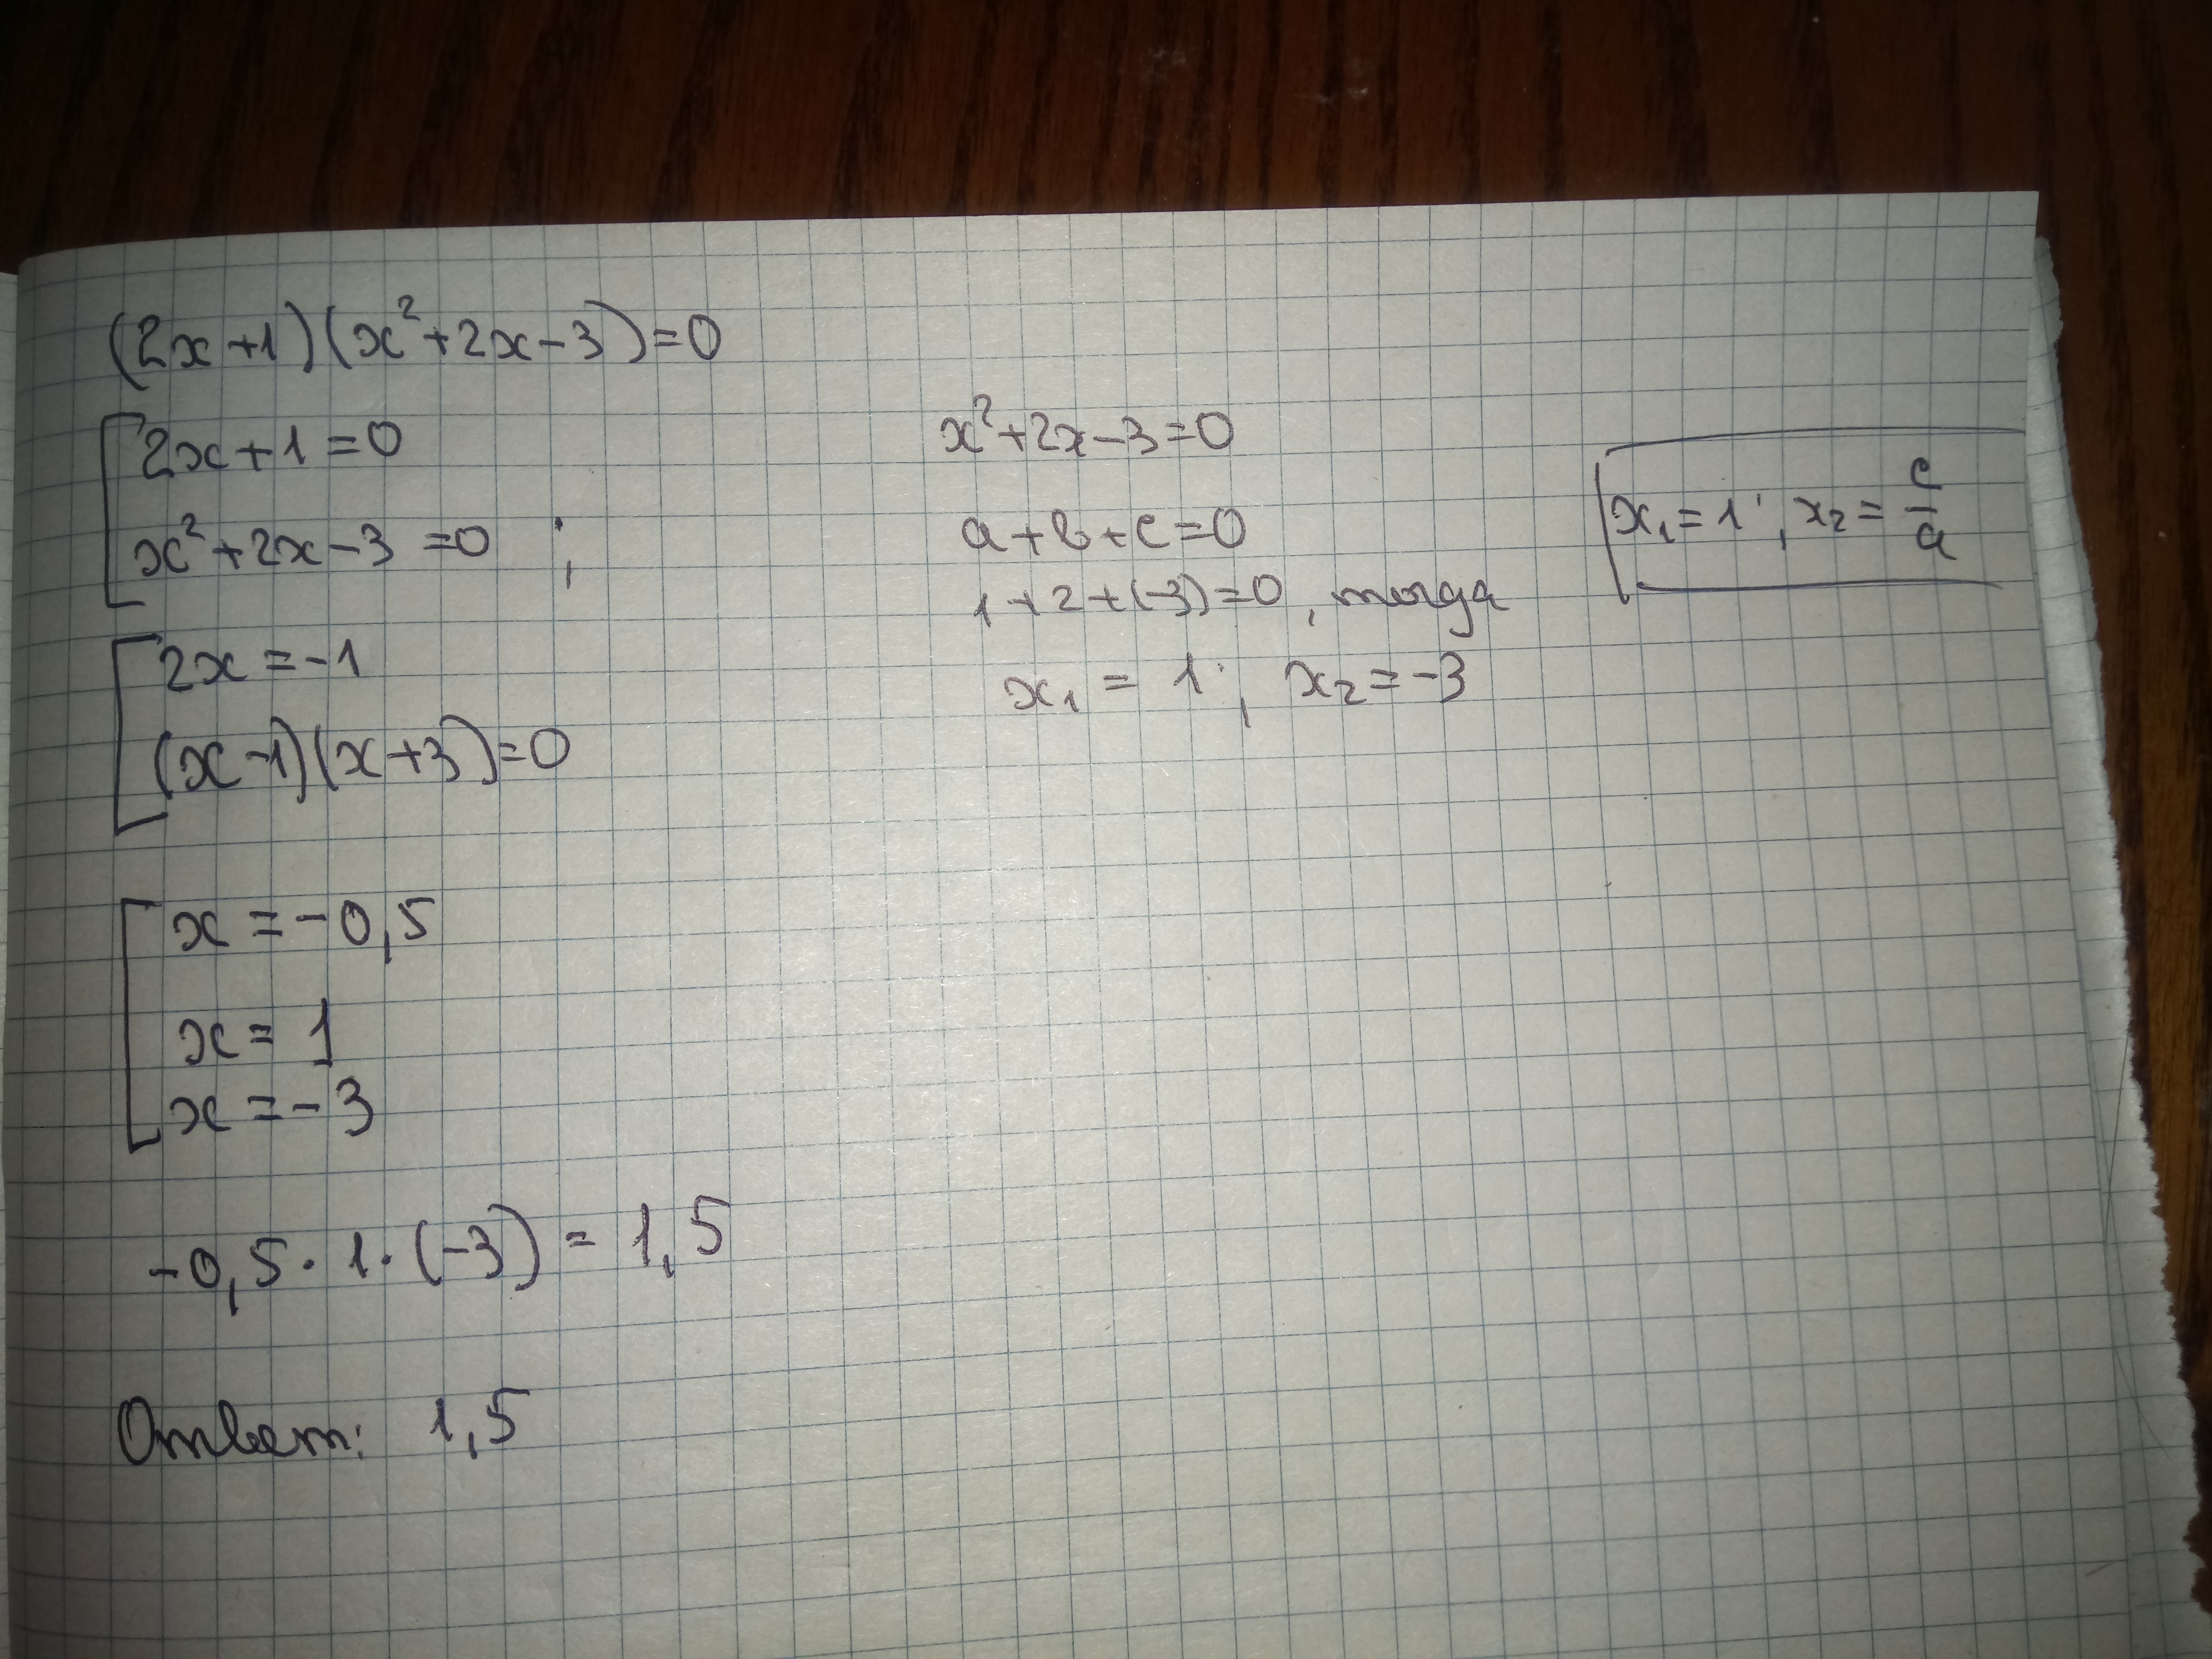 (2x+1)(x²+2x-3)=0
2x+1=0
x²+2x-3=0 ;
2x=-1
(x-1)(x+3)=0
x=-0,5
x=1
x=-3
-0,5·1·(-3)=1,5
Ответ: 1,5
x²+2x-3=0
a+b+c=0
1+2+(-3)=0, тогда
x₁=1; x₂=-3
x₁=1; x₂=c/a